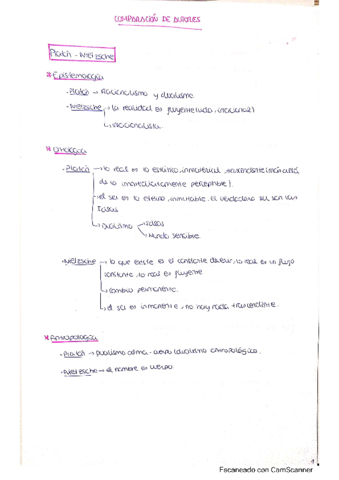 COMPARACIÓN DE AUTORES
Platón - Nietzsche
* Epistemología
- Platón → Racionalismo y dualismo
- Nietzsche → la realidad es fluyente, irracional
↳ irracionalista
* Ontología
- Platón → lo real es lo inmaterial, trascendente (más allá
de lo inmediatamente perceptible).
el ser es lo eterno, inmutable. El verdadero ser son las
Ideas
↳ Dualismo Ideas
Mundo sensible.
- Nietzsche → lo que existe es el constante devenir, lo real es un flujo
constante, lo real es fluyente
↳ cambio permanente.
↳ el ser es inmanente, no hay nada trascendente.
* Antropología
- Platón → dualismo alma-cuerpo (dualismo antropológico.
- Nietzsche → el hombre es cuerpo
Escaneado con CamScanner